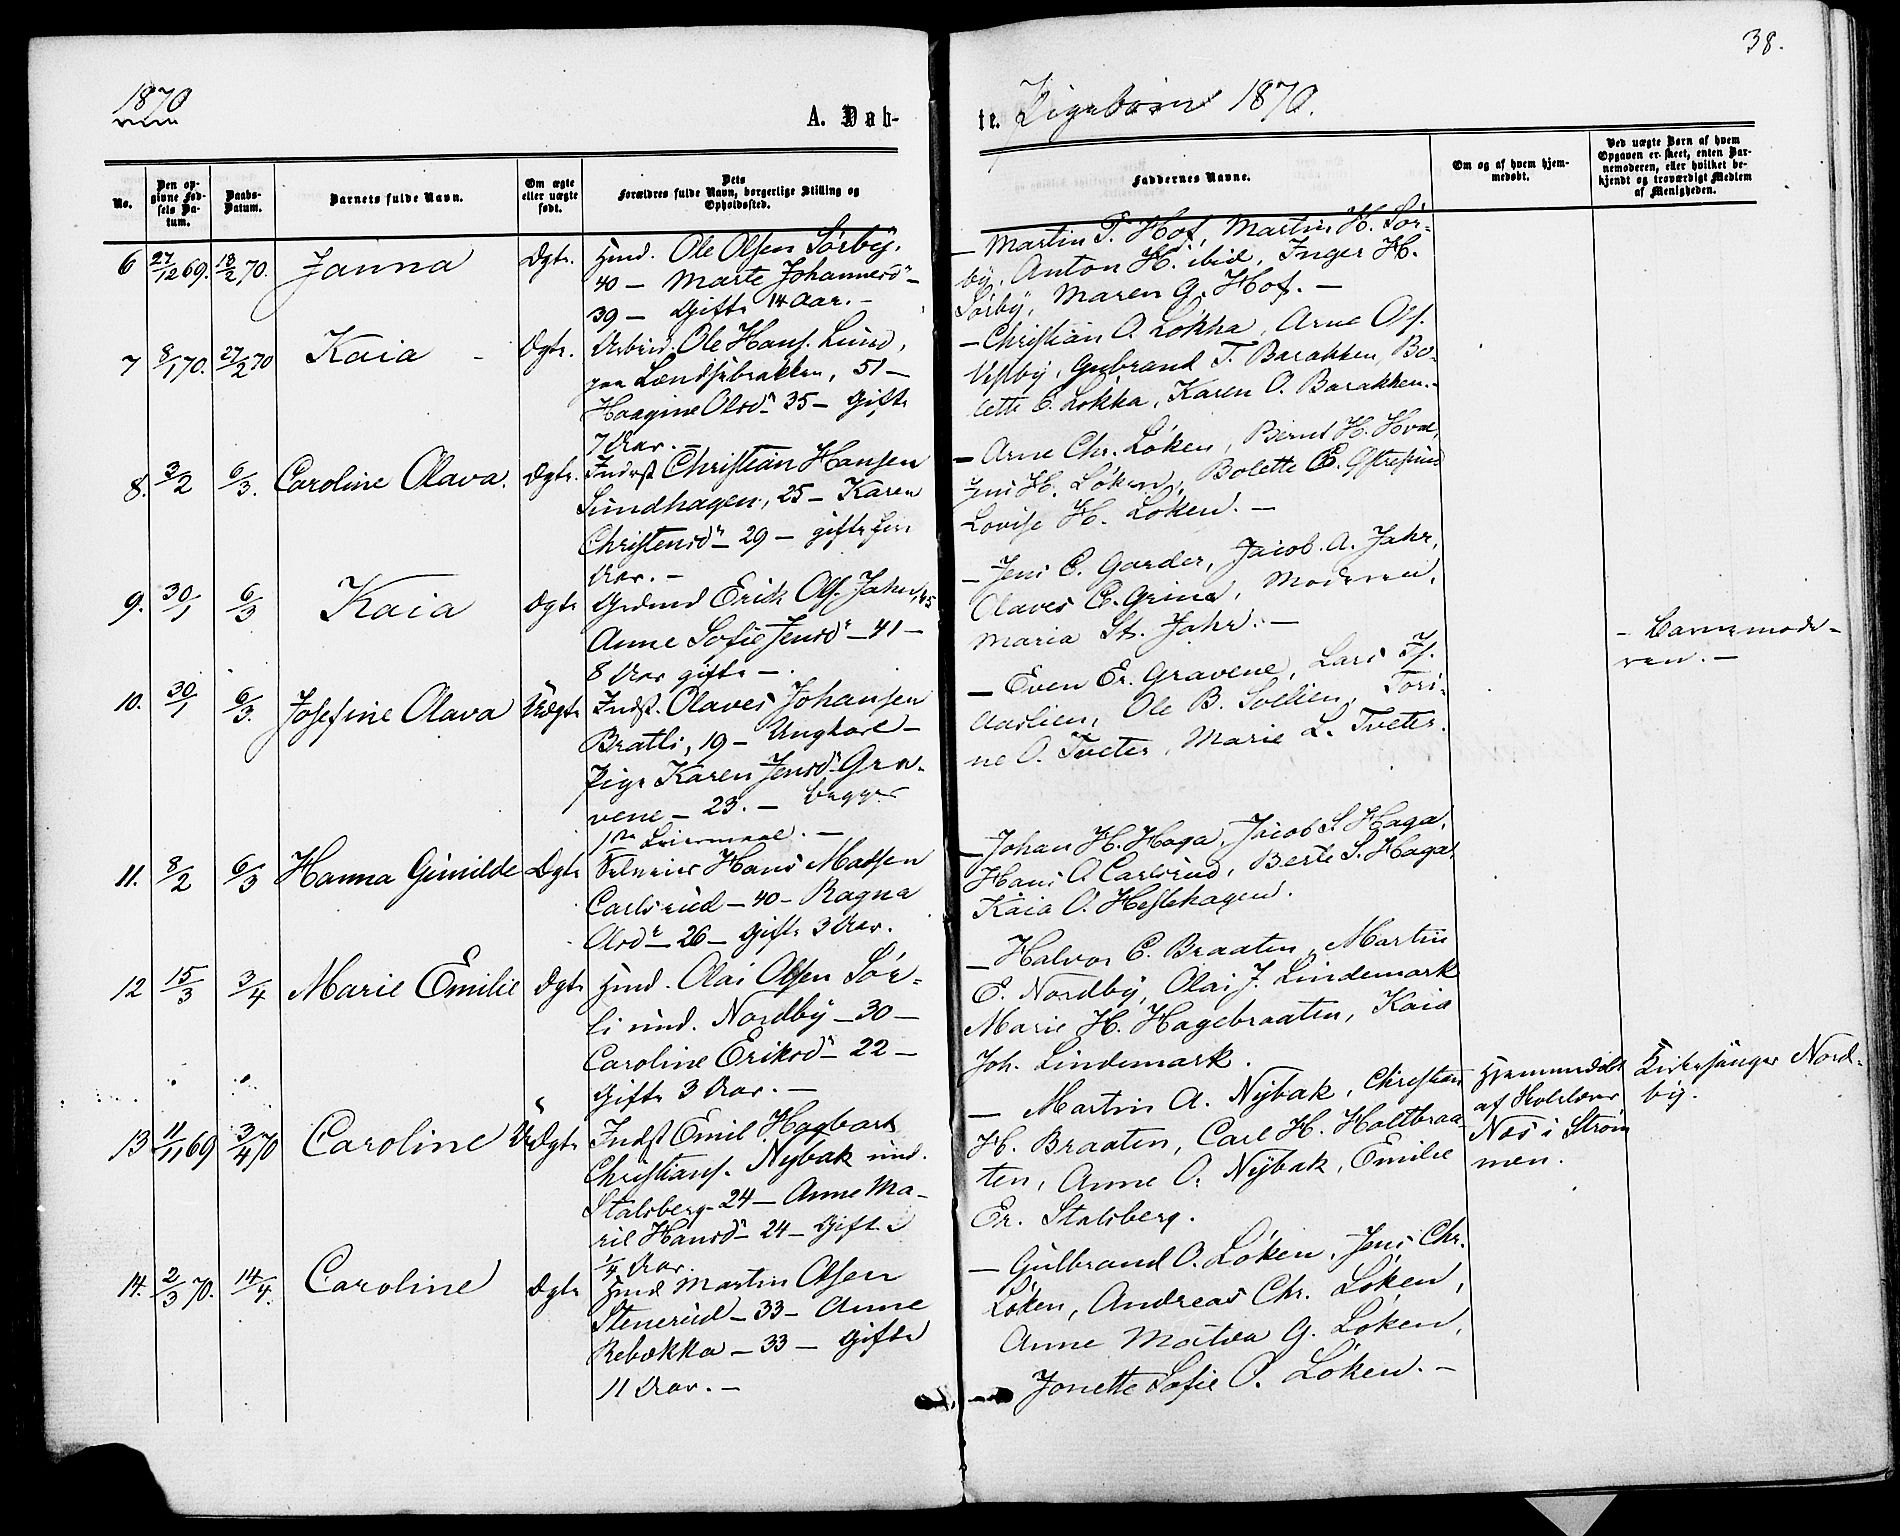 38.
1870
A. Døb-
te. Pigebørn 1870.
No.
Den op-
givne Fød-
sels Da-
tum.
Daabs-
Datum.
Barnets fulde Navn.
Om ægte
eller uægte
født.
Dets
Forældres fulde Navn, borgerlige Stilling og
Opholdssted.
Faddernes Navne.
Om og af hvem hjem-
medøbt.
Ved uægte Børn af hvem
Opgaven er skeet, enten Bar-
nemoderen, eller hvilket be-
kjendt og troværdigt Medlem
af Menigheden.
6 27/12 69. 13/2 70. Janna Ægte.
Hmd. Ole Olsen Sørby,
40 – Marte Johannesdr –
39 – Gifte 14 Aar. –
– Martin P. Hof, Martin H. Sør-
by, Anton H. ibid, Inger H.
Sørby, Maren G. Hof. –
7 8/1 70. 27/2 70 Kaia – Ægte.
Arbeid. Ole Hans. Lund,
paa Lændsebrakken, 51 –
Haagine Olsdr 35 – Gifte
7 Aar. –
– Christian O. Løkka, Arne Ols.
Vestby, Gulbrand T. Barakken, Bo-
lette E. Løkka, Karen O. Barakken. –
8. 3/2 6/3. Caroline Olava. Ægte.
Inderst Christian Hansen
Sundhagen, 25 – Karen
Christensdr – 29 – gifte
Aar. –
– Arne Chr. Løken, Bernt H. Hval,
Jens H. Løken, Bolette E.
Lovise H. Løken. –
9. 30/1 6/3 Kaia Ægte
Grdmd Erik Ols. Jahr, 45
Anne Sofie Jensdr – 41 –
8 Aar gifte –.
– Jens E. Garder, Jacob A. Jahr,
Olaves E. Grina, Moderen,
Maria St. Jahr. –
10. 30/1 6/3. Josefine Olava Uægte
Indst. Olaves Johansen
Bratli, 19 – Ungkarl –
Pige Karen Jensdr Gra-
vene – 23. – begges
1ste Leiermaal. –
– Even Er. Gravene, Lars
Aaslien, Ole B. Sollien, Tori-
ne O. Tveter, Marie L. Tveter.
– Barnemode-
ren. –
11. 8/2 6/3 Hanna Gunilde Ægte
Selveier Hans Madsen
Carlsrud – 40 – Ragna
Olsdr – 26 – Gifte 3 Aar.
– Johan H. Haga, Jacob S. Haga,
Hans O. Carlsrud, Berte S. Haga,
Kaia O. Heslehagen.
12 15/3 3/4 Marie Emilie Ægte
Hmd. Olai Olsen Sør-
li und. Nordby – 30 –
Caroline Eriksdr – 22 –
Gifte 3 Aar. –
– Halvor E. Braaten, Martin
E. Nordby, Olai J. Lindemark
Marie H. Hagebraaten, Kaia
Joh. Lindemark.
13 11/11 69 3/4 70 Caroline Uægte
Indst Emil Hagbart
Christians. Nybak und.
Stalsberg – 24 – Anne Ma-
rie Hansdr – 24 – Gifte
1/4 Aar.
– Martin A. Nybak, Christian
H. Braaten, Carl H. Holtbraa-
ten, Anne O. Nybak, Emilie
Er. Stalsberg.
Hjemmedøbt
af Skolelærer
Næs i Strøm
men.
Kirkesanger Nord-
by.
14. 2/3 70. 14/4. Caroline Ægte
Hmd Martin Olsen
Stenerud – 33 – Anne
Rebekka – 33 – Gifte
11 Aar. –
– Gulbrand O. Løken, Jens Chr.
Løken, Andreas Chr. Løken,
Anne Matea G. Løken,
Jonette Sofie O. Løken. –